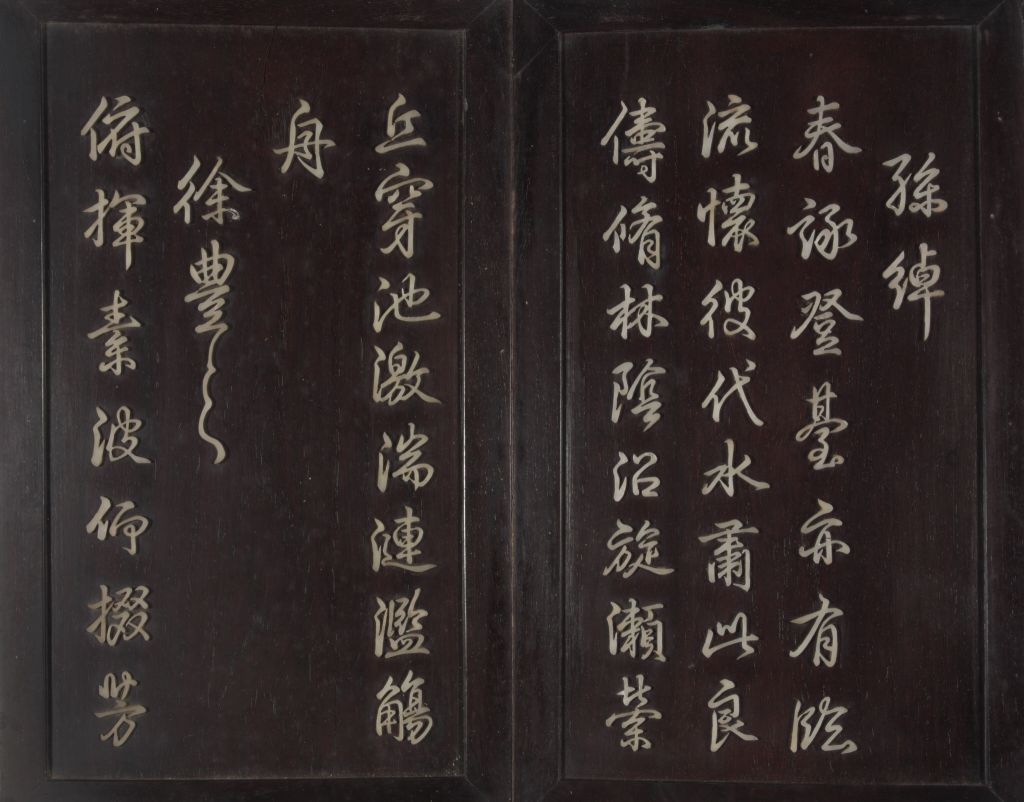 孫綽
春詠登臺亦有臨
流懷彼伐水肅此良
儔脩林陰沼旋瀨縈
丘穿池激湍連濫觴
舟
徐豐之
俯揮素波仰掇芳